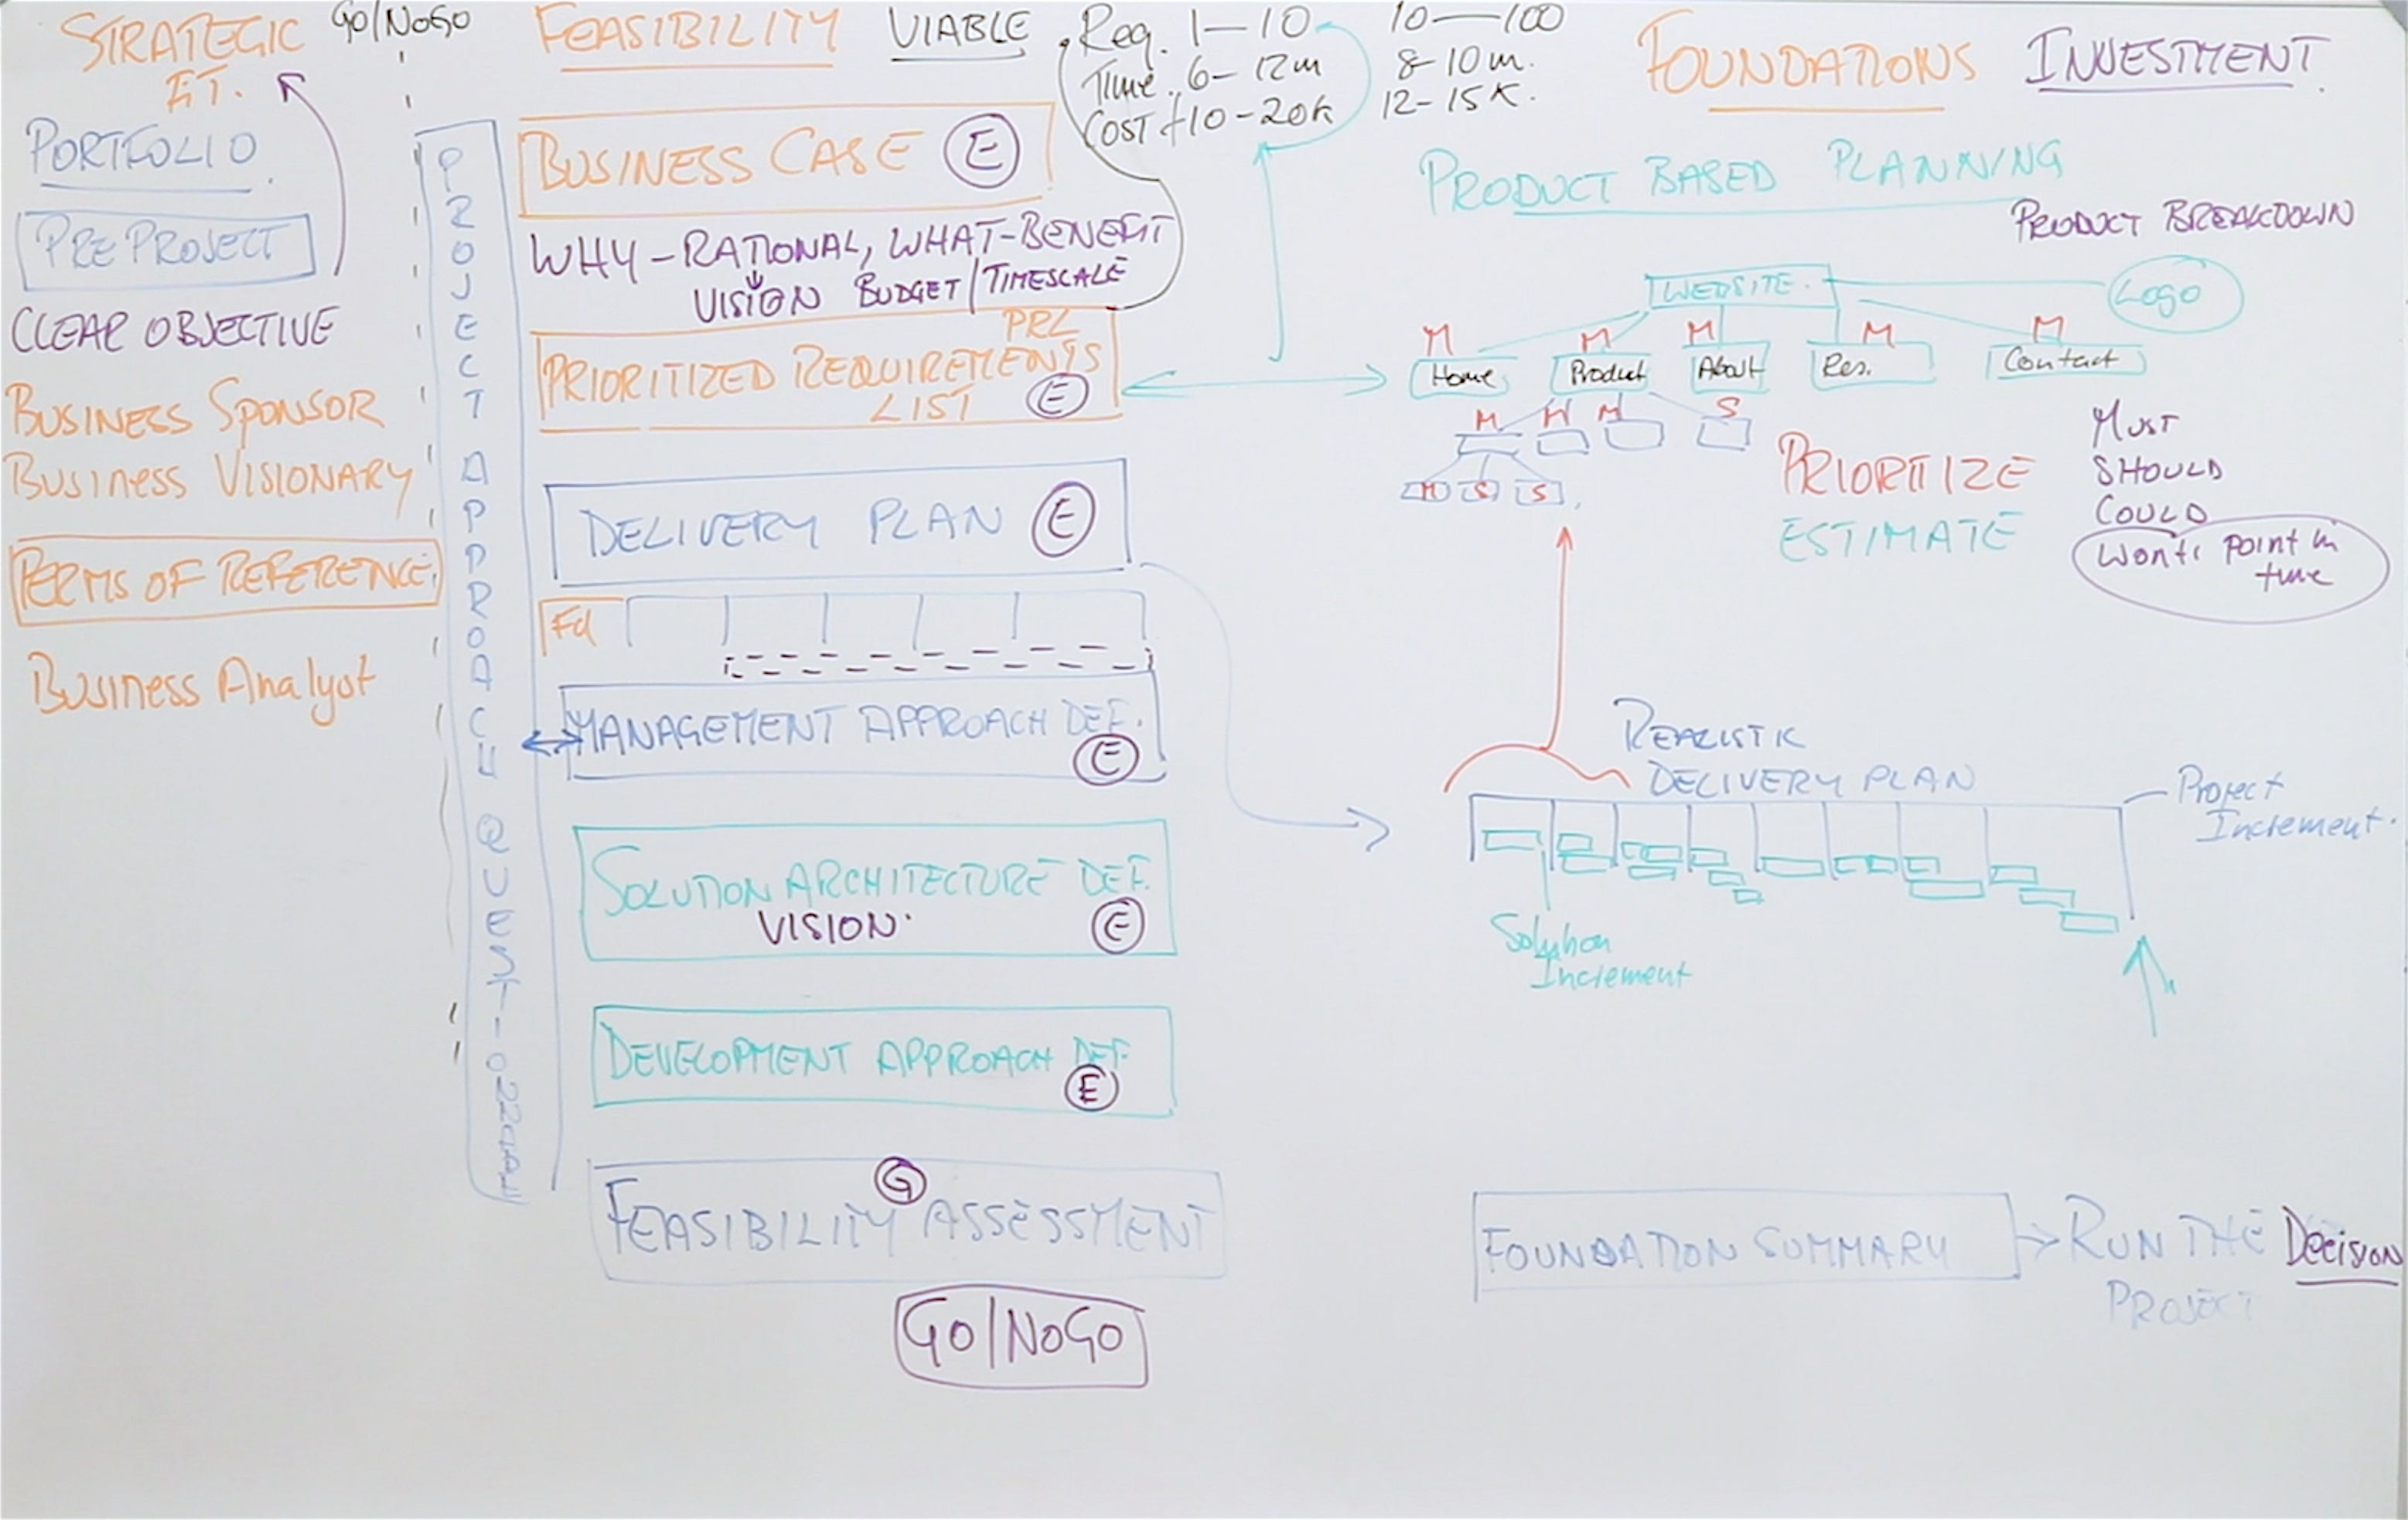 STRATEGIC
FIT.
GO/NOGO
PORTFOLIO
PRE PROJECT
CLEAR OBJECTIVE
BUSINESS SPONSOR
BUSINESS VISIONARY
TERMS OF REFERENCE.
BUSINESS Analyst
PROJECT APPROACH
FEASIBILITY VIABLE
Req. 1—10 10—100
TIME. 6-12m 8-10m.
COST £10-20k 12-15K.
BUSINESS CASE E
WHY-RATIONAL, WHAT-BENEFIT
VISION BUDGET/TIMESCALE
PRL
PRIORITIZED REQUIREMENTS
LIST E
DELIVERY PLAN E
Fd
MANAGEMENT APPROACH DEF.
E
SOLUTION ARCHITECTURE DEF.
VISION. E
DEVELOPMENT APPROACH DEF.
E
G
FEASIBILITY ASSESSMENT
GO/NOGO
FOUNDATIONS INVESTMENT
PRODUCT BASED PLANNING
PRODUCT BREAKDOWN
WEBSITE. Logo
M M M M M
Home Product About Res. Contact
M M M S
M S S
PRIORITIZE
ESTIMATE
MUST
SHOULD
COULD
Wont: POINT in
time
REALISTIC
DELIVERY PLAN
Project
Increment.
Solution
Increment
FOUNDATION SUMMARY
RUN THE Decision
PROJECT